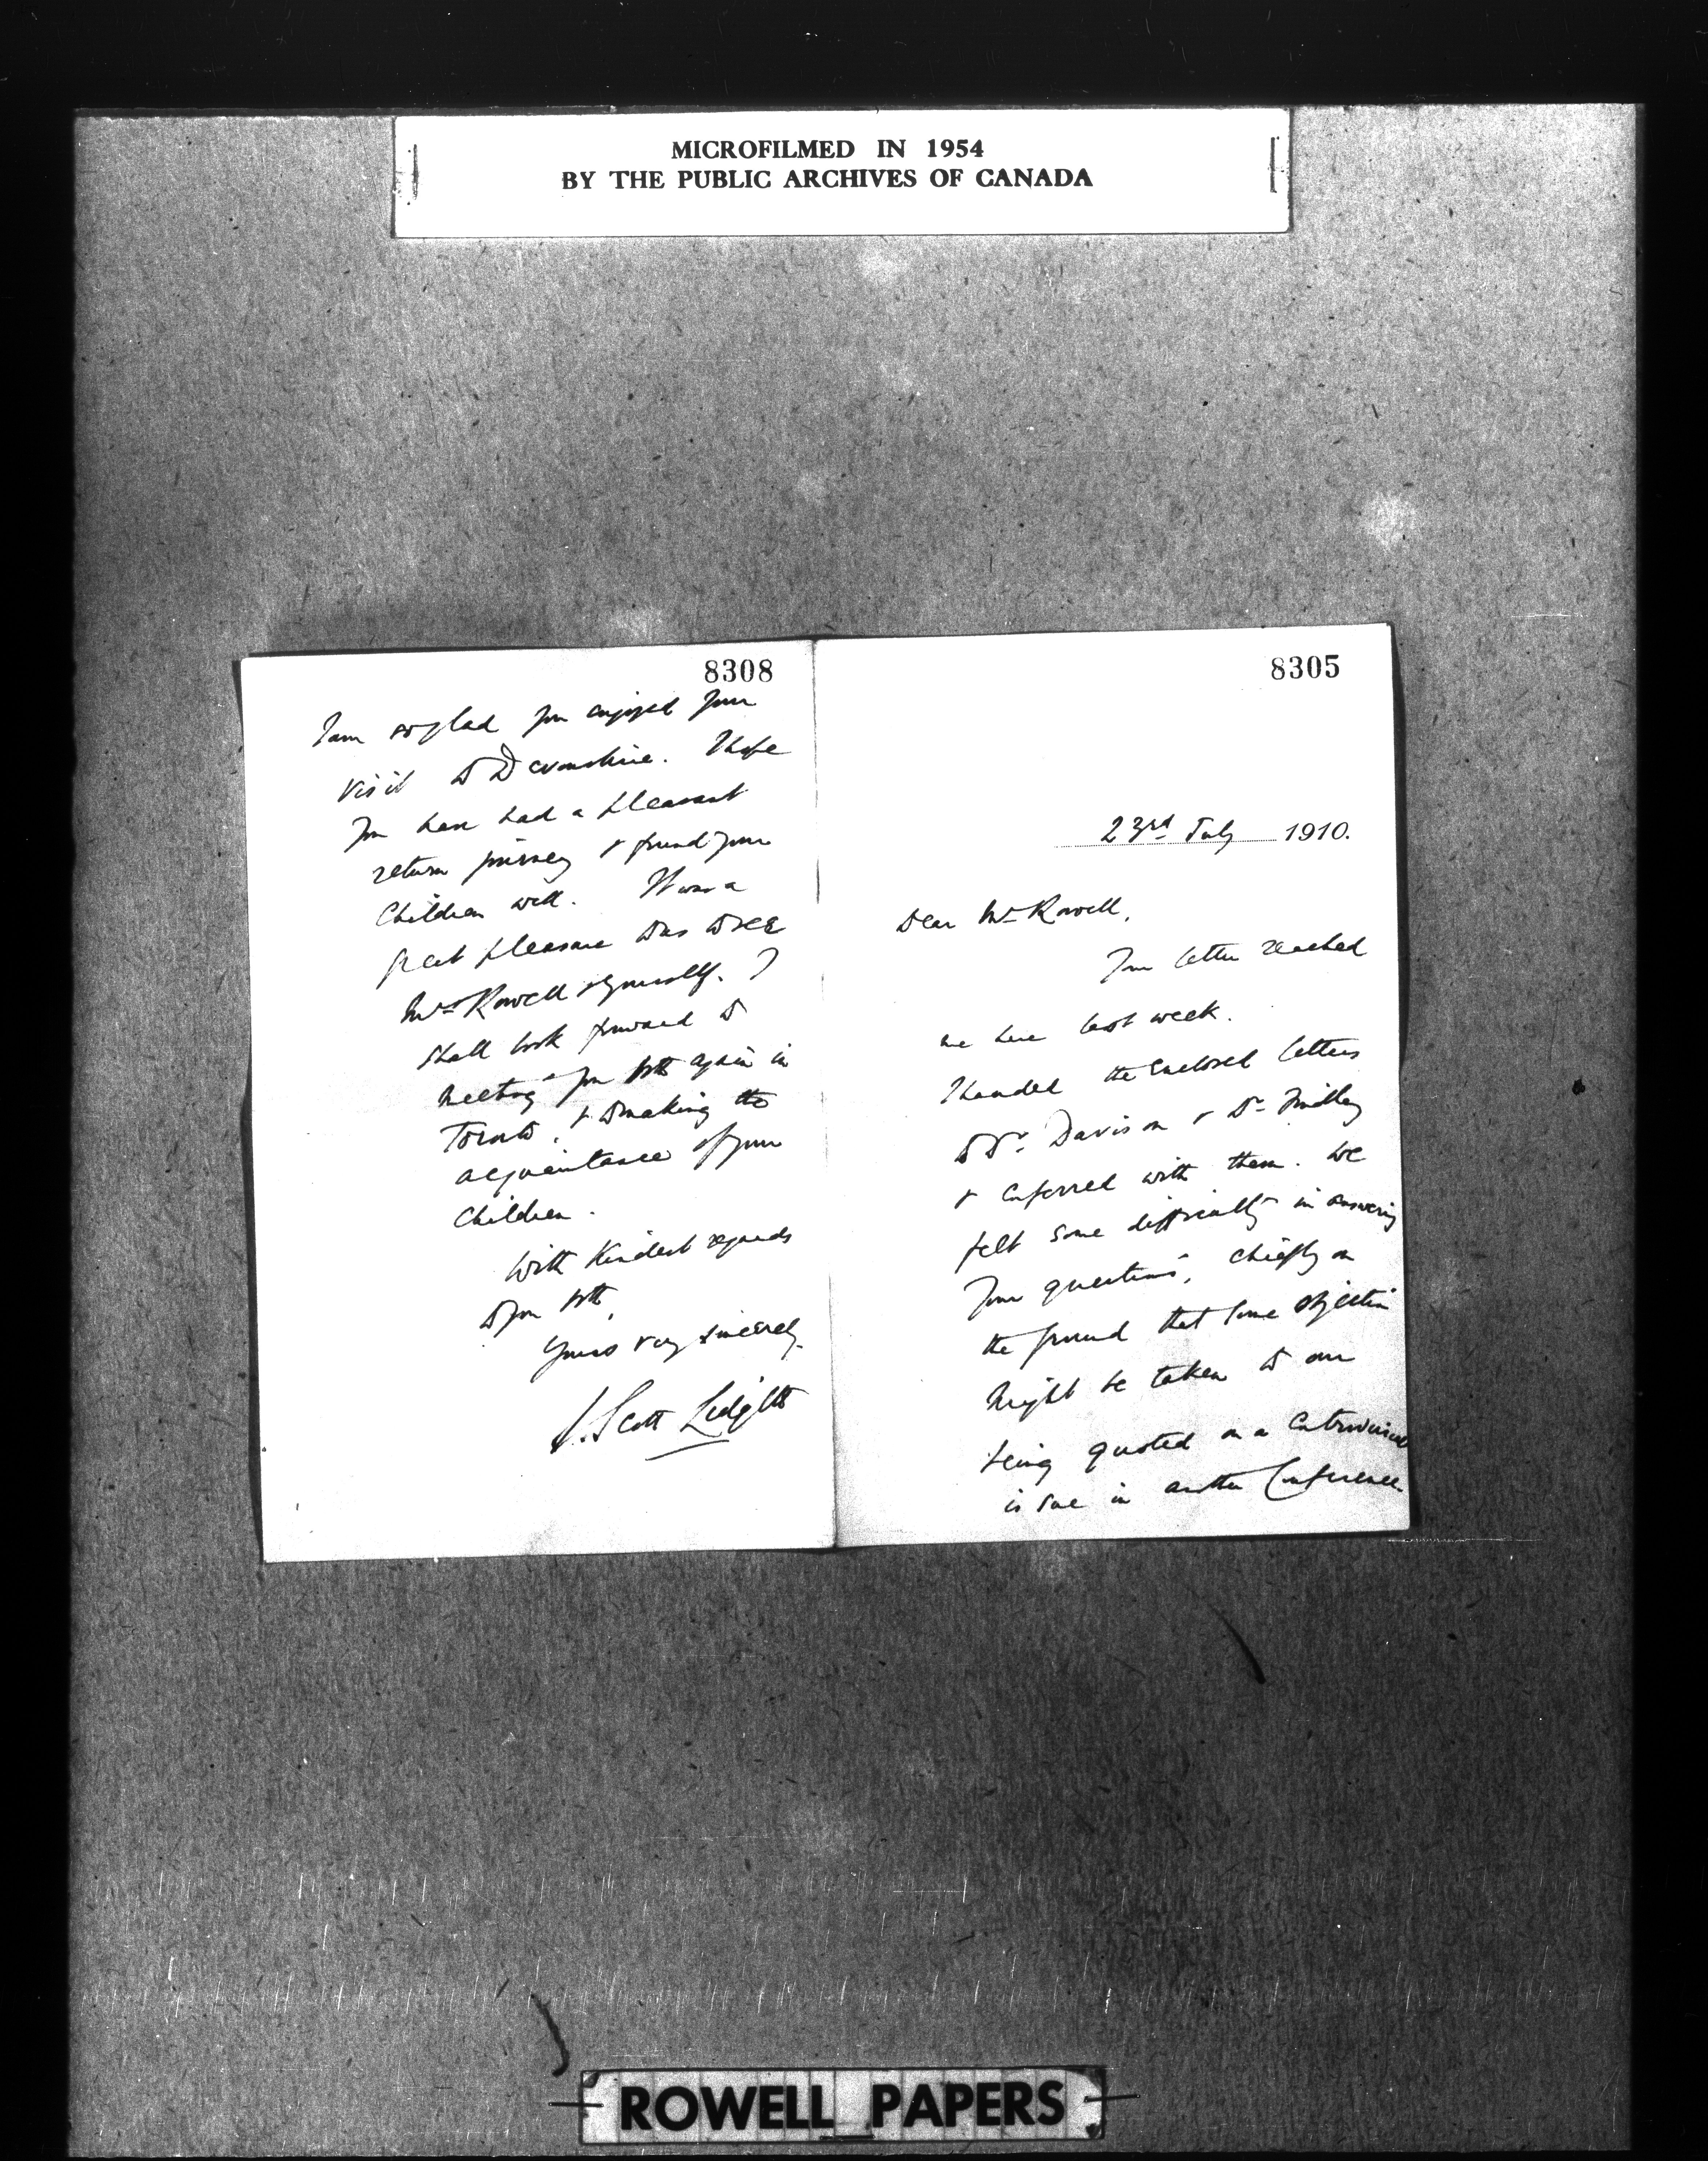 MICROFILMED IN 1954
BY THE PUBLIC ARCHIVES OF CANADA
8308
I am so glad you enjoyed your
visit to Devonshire. I hope
you have had a pleasant
return journey & found your
children well. It was a
great pleasure to us to see
Mrs Rowell & yourself. I
shall look forward to
meeting you both again in
Toronto, & to making the
acquaintance of your
children.
With kindest regards
to you both,
Yours very sincerely,
J. Scott Lidgett
8305
23rd July 1910.
Dear Mr Rowell,
Your letter reached
me here last week.
I handed the enclosed letters
to Dr. Davison & Dr Findlay
& conferred with them. We
felt some difficulty in answering
your questions, chiefly on
the ground that some objection
might be taken to our
being quoted on a controversial
issue in another Conference
ROWELL PAPERS